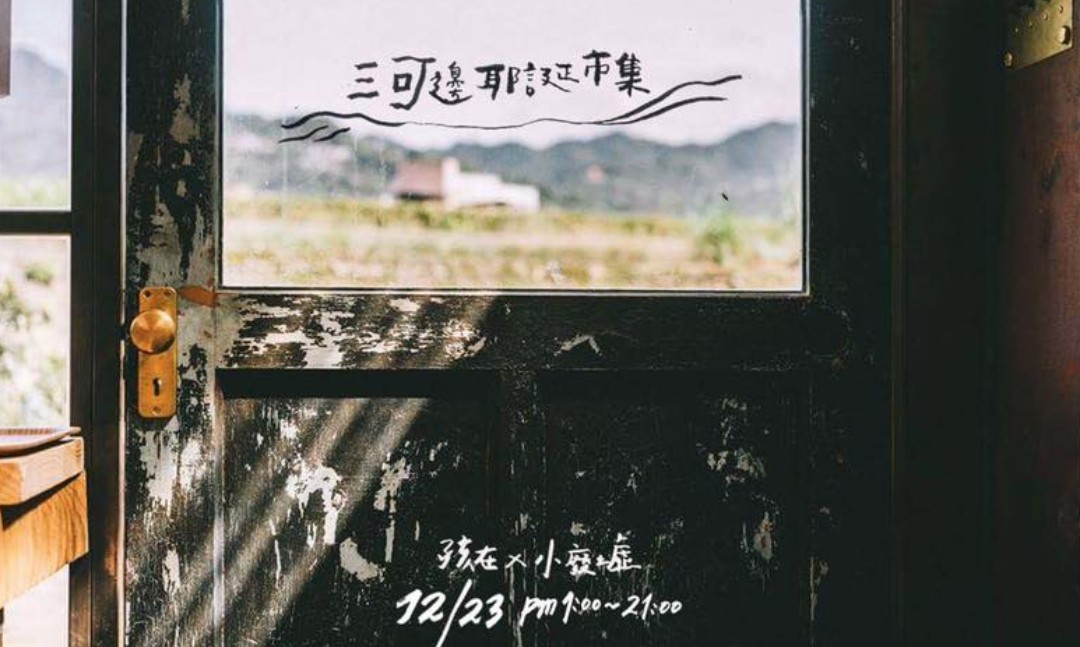 三可邊耶誕市集
孩在×小廢墟
12/23 pm1:00~21:00